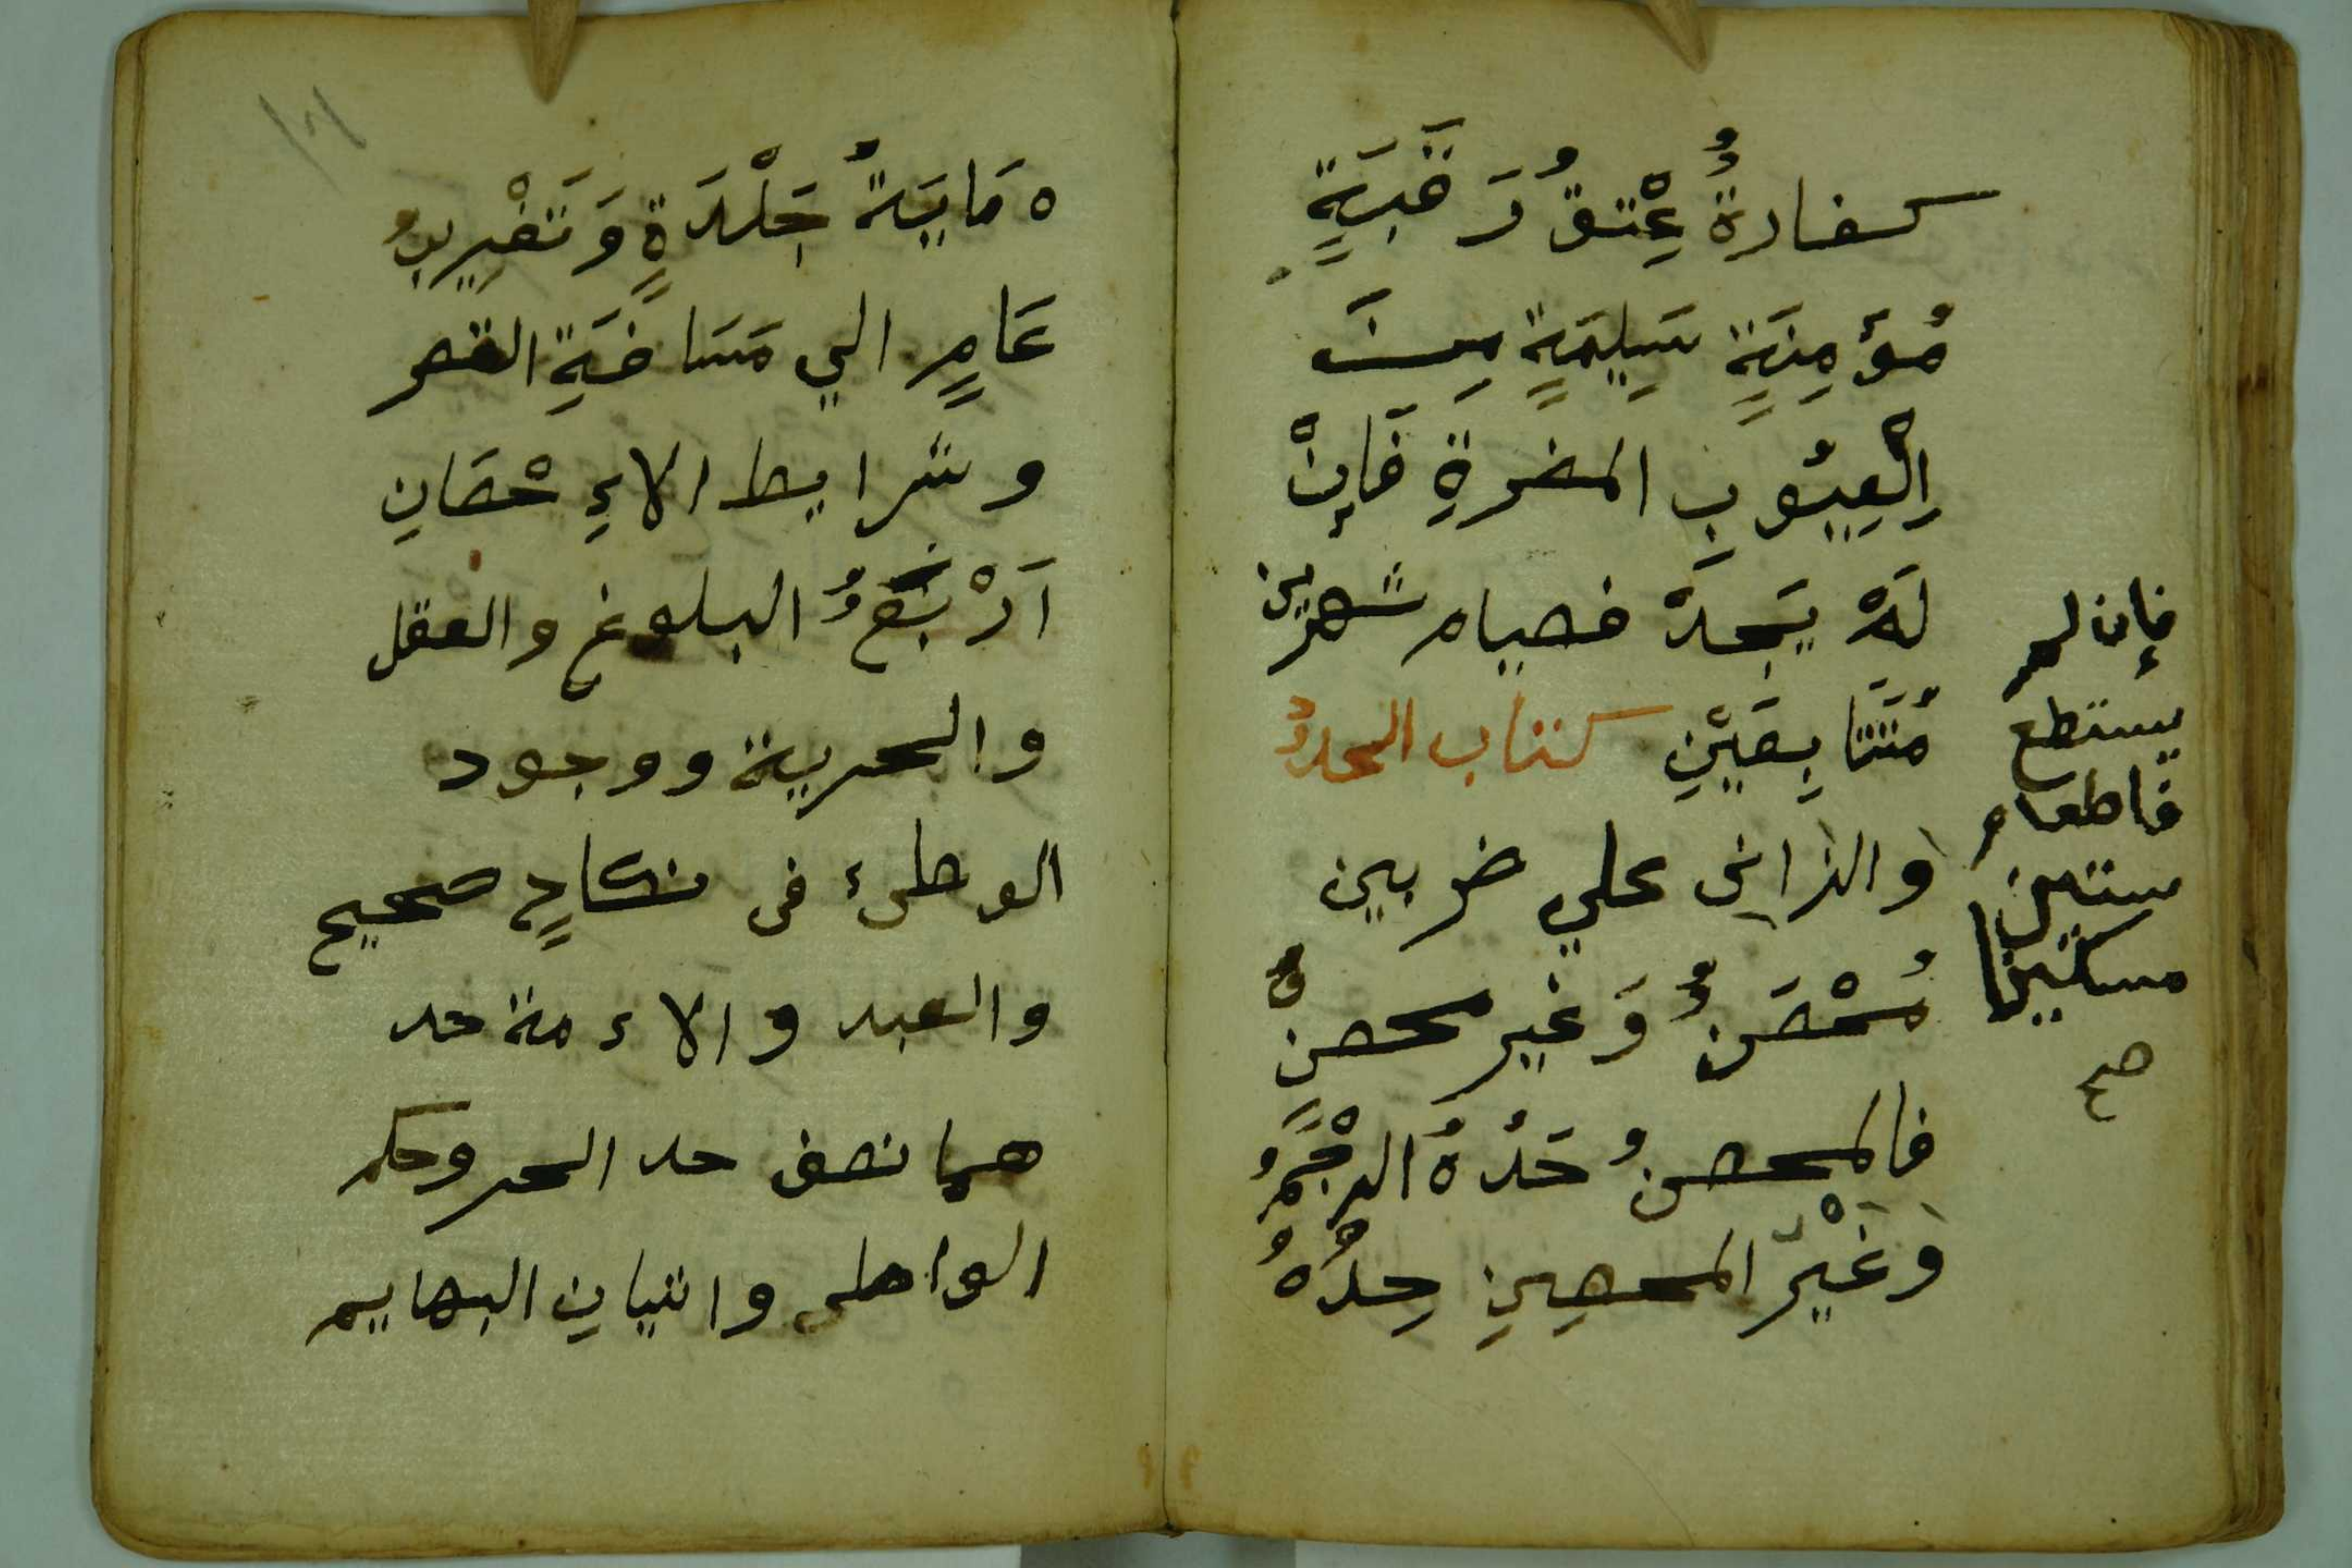 كفارةُ عِتْقُ رَقَبَةٍ
مُؤَمِنَةٍ سَلِيمَةٍ مِنَ
اِلْعِيُوبِ المضرةِ فَإِنْ
لَمْ يَجِدْ فصيام شهرين
مُتَتَابِعَيْنِ كتاب الحدودُ
وَالزاني علي ضربين
مُحْصَنٌ وَغير محصنٍ
فالمحصنُ حَدُهُ الرجْمُ
وَغَيْر المحصِنِ حِدُهُ
فإن لم
يستطع
فاطعام
ستين
مسكينا
صح
١٦
مَايَةُ جَلْدَةٍ وَتَغْرِيبُ
عَامٍ الي مَسَافَةِ القصر
وشرايط الاءِحْصَانِ
اَرْبَعٌ البلوغ والعقل
والحرية ووجود
الوطىء فى نكاحٍ صحيح
والعبد والاءمة حد
هما نصف حد الحر وحكم
الواطى واتيانِ البهايم